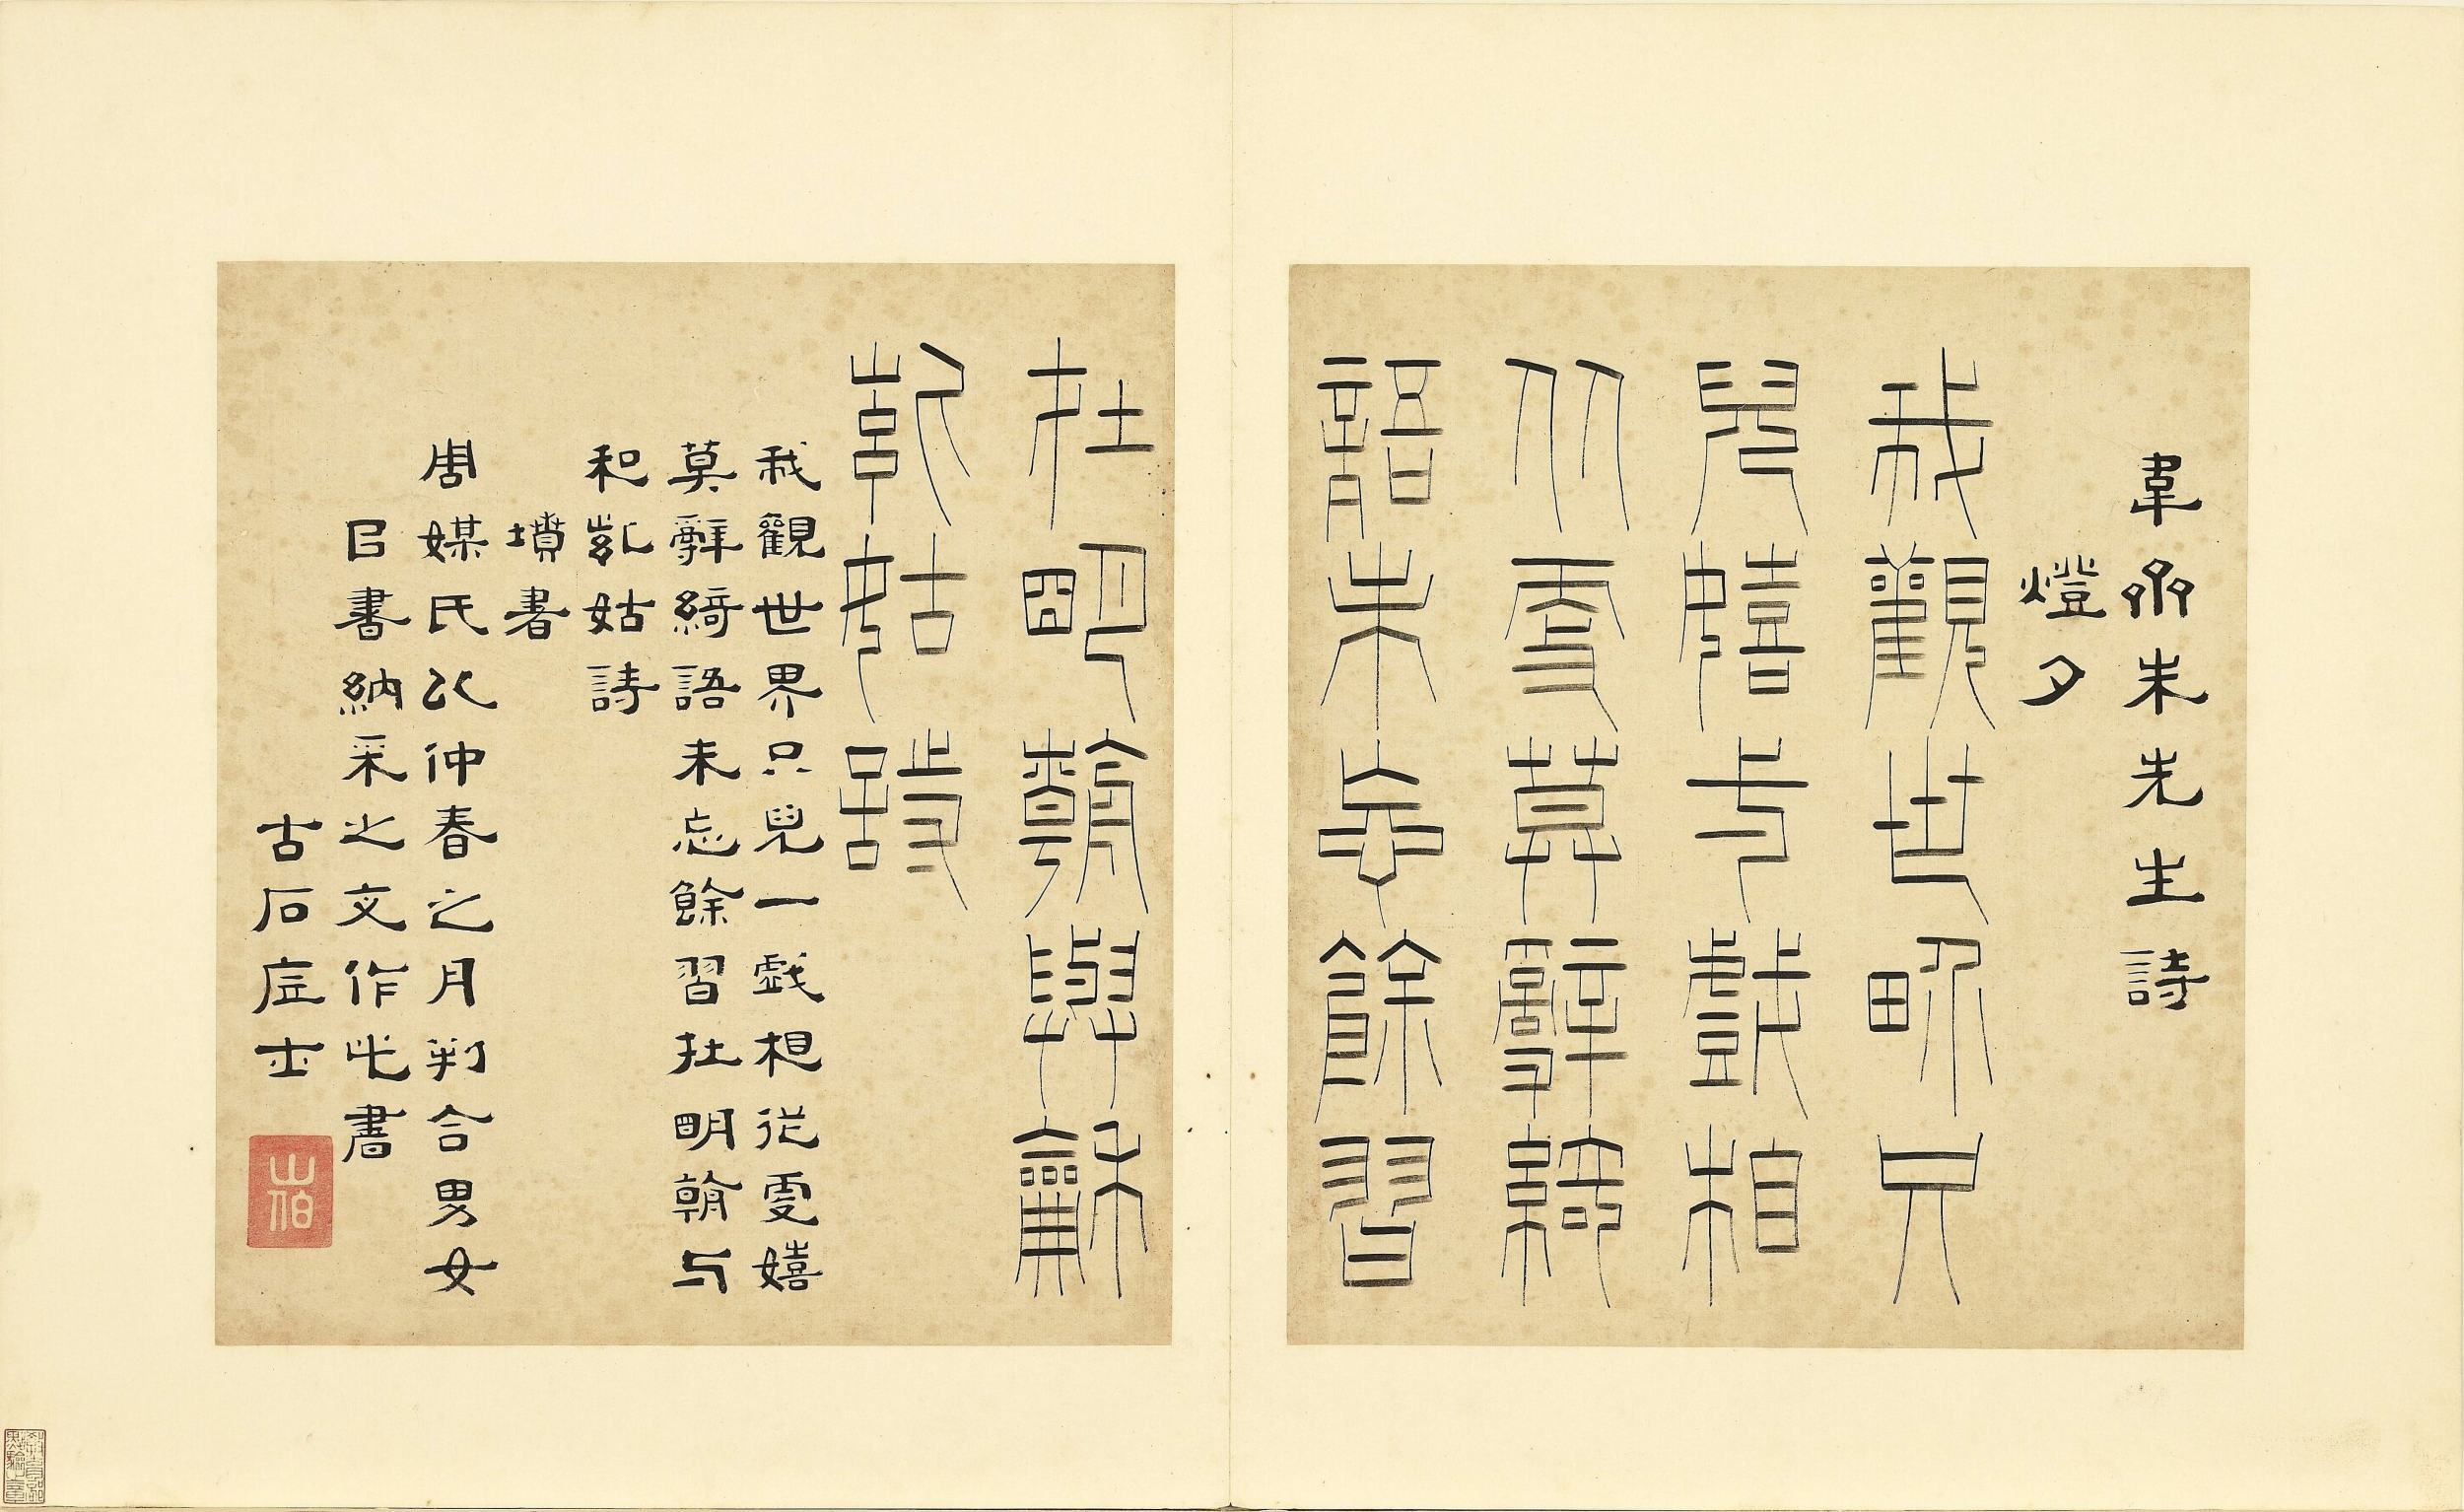 韋齋朱先生詩
燈夕
我觀世界只
兒嬉一戲相
從更莫辭綺
語未忘餘習
在明朝與龢
紫姑詩
我觀世界只兒一戲相從更嬉
莫辭綺語未忘餘習在明朝与
和紫姑詩
墳書
周媒氏以仲春之月判合男女
㠯書納采之文作此書
古石士
山伯